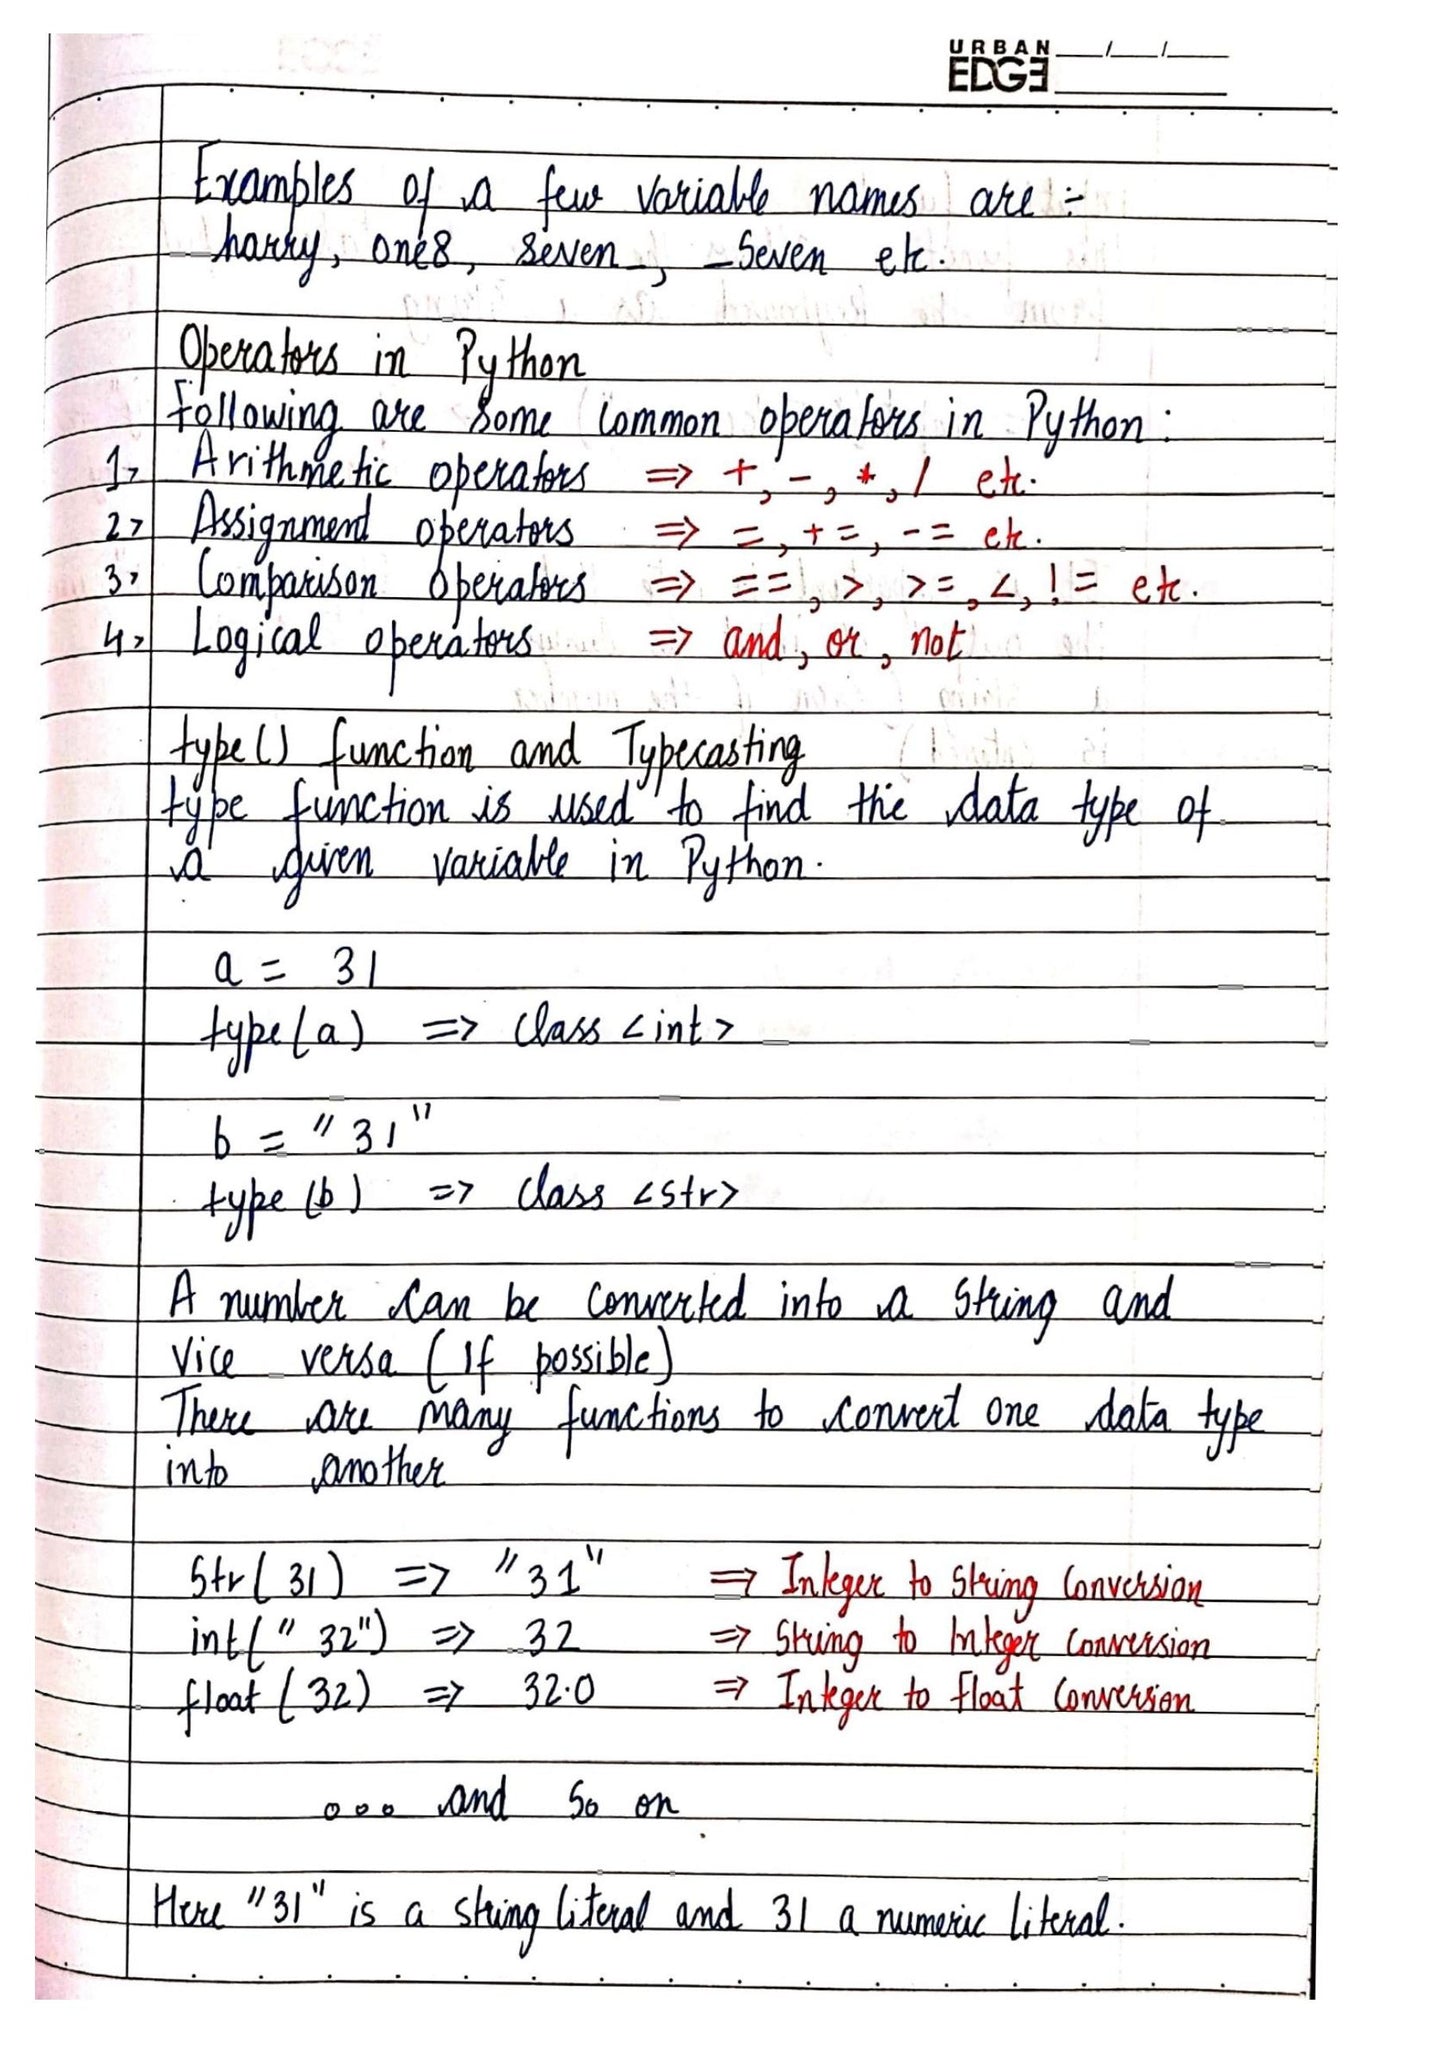 URBAN
EDGE
Examples of a few variable names are :-
harry, one8, seven_, _seven etc.
Operators in Python
Following are some common operators in Python :
1> Arithmetic operators => +, -, *, / etc.
2> Assignment operators => =, +=, -= etc.
3> Comparison operators => ==, >, >=, <, != etc.
4> Logical operators => and, or, not
type() function and Typecasting
type function is used to find the data type of
a given variable in Python.
a = 31
type(a) => class <int>
b = "31"
type(b) => class <str>
A number can be converted into a string and
vice versa (If possible)
There are many functions to convert one data type
into another
Str(31) => "31" => Integer to String Conversion
int("32") => 32 => String to Integer Conversion
float(32) => 32.0 => Integer to float Conversion
... and so on
Here "31" is a string literal and 31 a numeric literal.